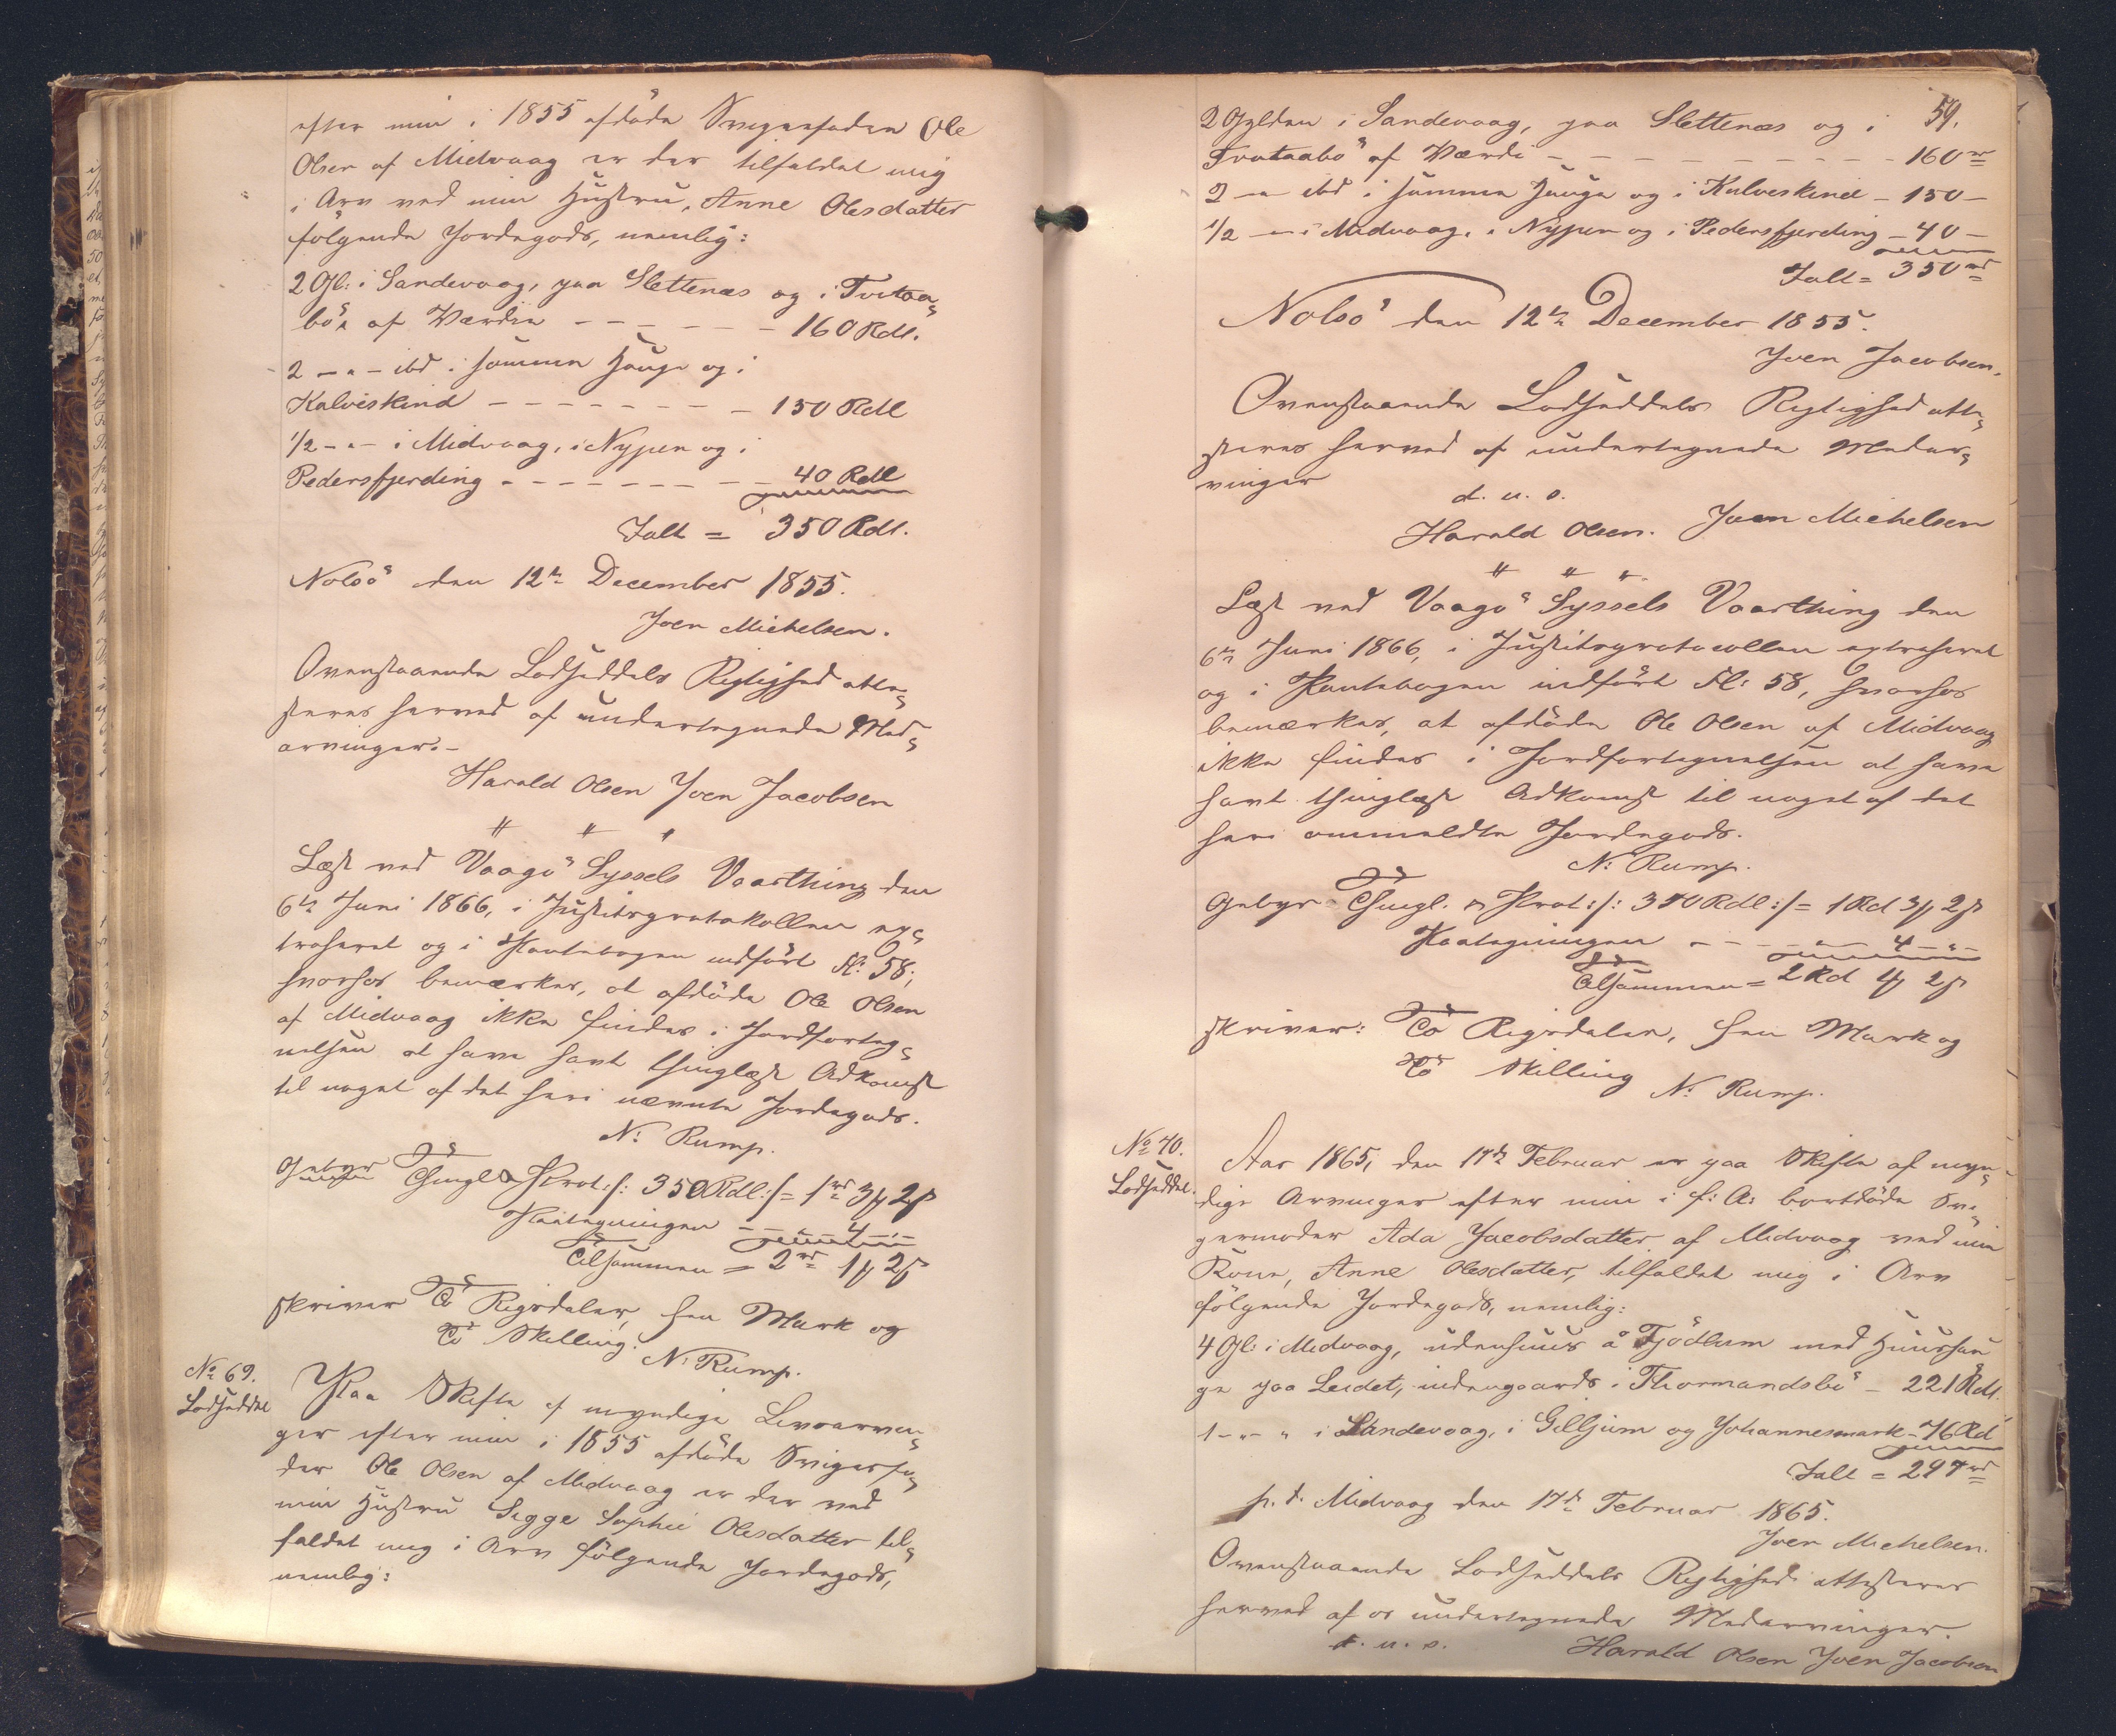 efter min i 1855 afdöde Svigerfader Ole
Olsen af Midvaag er der tilfaldet mig
i Arv ved min Hustru, Anne Olesdatter
følgende Jordegods, nemlig:
2 Gl: i Sandevaag, paa Slettenæs og i Tvitaa-
bö, af Værdie - - - - - - 160 Rdl.
2 - " - ibd i samme Hauge og i
Kalveskind - - - - - - - - 150 Rdl
1/2 - " - i Midvaag, i Nypen og i
Pedersfjerding - - - - - - - - 40 Rdl
Ialt = 350 Rdl.
Nolsö den 12te December 1855.
Joen Michelsen.
Ovenstaaende Lodseddels Rigtighed atte-
steres herved af undertegnede Med-
arvinger. -
Harald Olsen Joen Jacobsen
" " "
Læst ved Vaagö Syssels Vaarthing den
6te Juni 1866, i Justitsprotokollen ex-
traheret og i Pantebogen indført Fl: 58;
hvorhos bemærkes, at afdöde Ole Olsen
af Midvaag ikke findes i Jordforteg-
nelsen at have havt thinglæst Adkomst
til noget af det heri nævnte Jordegods.
N: Rump.
Gebyr Thingl. & Prot:/: 350 Rdl:/= 1rd 3 ℳ 2 ß
Paategningen - - - " - 4 - " -
Tilsammen = 2rd 1 ℳ 2 ß
skriver To Rigsdaler, een Mark og
To Skilling.
N: Rump.
No 69.
Lodseddel
Paa Skifte af myndige Livsarvin-
ger efter min i 1855 afdöde Svigerfa-
der Ole Olsen af Midvaag er der ved
min Hustru Sigge Sophie Olesdatter til-
faldet mig i Arv følgende Jordegods,
nemlig:
59.
2 Gylden i Sandevaag, paa Slettenæs og i
Tvitaabö af Værdi - - - - - - - - - 160 rd
2 - " ibd i samme Hauge og i Kalveskind - 150 -
1/2 - " - i Midvaag, i Nypen og i Pedersfjerding - 40 -
Ialt = 350 rd
Nolsö den 12te December 1855.
Joen Jacobsen.
Ovenstaaende Lodseddels Rigtighed atte-
steres herved af undertegnede Medar-
vinger
d. u. s.
Harald Olsen. Joen Michelsen
" " "
Læst ved Vaagö Syssels Vaarthing den
6te Juni 1866, i Justitsprotocollen extraheret
og i Pantebogen indført Fl: 58, hvorhos
bemærkes, at afdöde Ole Olsen af Midvaag
ikke findes i Jordfortegnelsen at have
havt thinglæst Adkomst til noget af det
heri ommeldte Jordegods.
N: Rump.
Gebyr Thingl. & Prot:/: 350 Rdl:/= 1 Rd 3 ℳ 2 ß
Paategningen - - - - " - 4 - " -
Tilsammen = 2 Rd 1 ℳ 2 ß
skriver: To Rigsdaler, een Mark og
To Skilling
N: Rump.
No 70.
Lodseddel.
Aar 1865, den 17de Februar er paa Skifte af myn-
dige Arvinger efter min i f: A: bortdöde Svi-
germoder Ada Jacobsdatter af Midvaag ved min
Kone, Anne Olesdatter, tilfaldet mig i Arv
følgende Jordegods, nemlig:
4 Gl: i Midvaag, udenhuus å Tjödlum med Huushau
ge paa Leidet, indengaards i Thormandsbö - 221 Rdl.
1 - " - " i Sandevaag, i Gilljum og Johannesmark - 76 Rd
Ialt = 297 rd
p. t. Midvaag den 17de Februar 1865.
Joen Michelsen.
Ovenstaaende Lodseddels Rigtighed attesteres
herved af os undertegnede Medarvinger.
d. u. s. Harald Olsen Joen Jacobsen